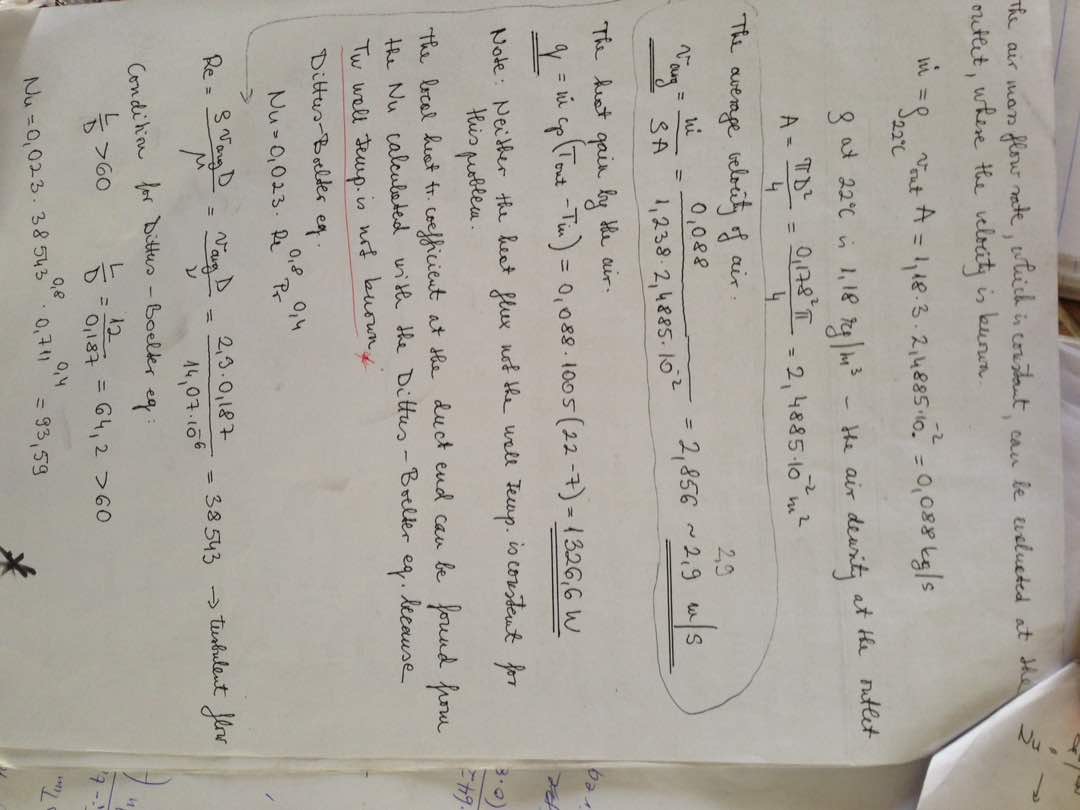 The air mass flow rate, which is constant, can be evaluated at the
outlet, where the velocity is known.
ṁ = ρ22°C vout A = 1,18·3·2,4885·10⁻² = 0,088 kg/s
ρ at 22°C is 1,18 kg/m³ – the air density at the outlet
A = πD²/4 = 0,178²π/4 = 2,4885·10⁻² m²
The average velocity of air.
2,9
vavg = ṁ/ρA = 0,088/1,238·2,4885·10⁻² = 2,856 ~ 2,9 m/s
The heat gain by the air.
q = ṁ cp (Tout – Tin) = 0,088·1005 (22-7) = 1326,6 W
Note: Neither the heat flux not the wall temp. is constant for
this problem.
The local heat tr. coefficient at the duct end can be found from
the Nu calculated with the Dittus-Boelter eq. because
Tw wall temp. is not known *
Dittus-Boelter eq.
Nu = 0,023 · Re^0,8 Pr^0,4
Re = ρ vavg D/μ = vavg D/ν = 2,9·0,187/14,07·10⁻⁶ = 38543 → turbulent flow
Condition for Dittus-Boelter eq:
L/D > 60 L/D = 12/0,187 = 64,2 > 60
Nu = 0,023 · 38543^0,8 · 0,711^0,4 = 93,59